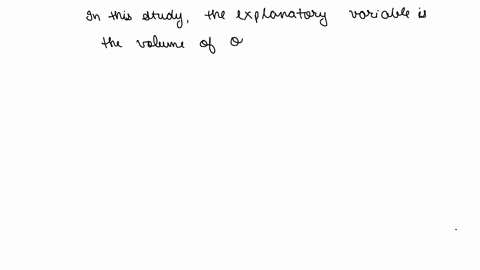 In this study, the explanatory variable is
the volume of O